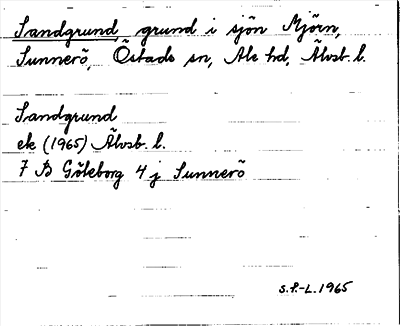 Sandgrund grund i sjön Mjörn,
Sunnerö, Östads sn, Ale hd, Älvsb. l.
Sandgrund
ek (1965) Älvsb. l.
7 B Göteborg 4 j Sunnerö
S.F.-L. 1965